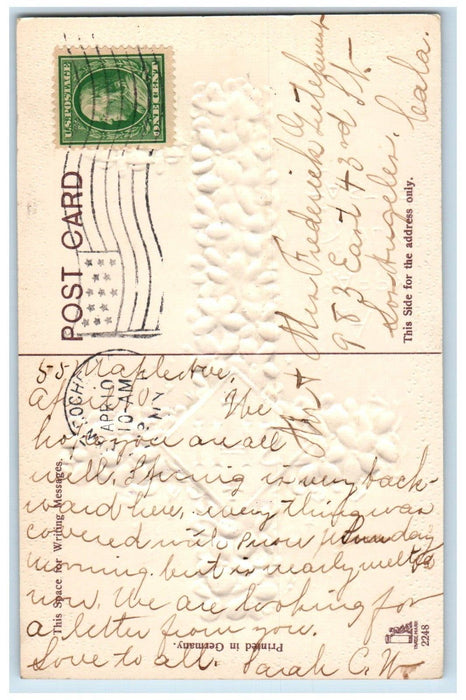 U.S. POSTAGE
ONE CENT
POST CARD
ROCH
APR 10
10-AM
N.Y.
This Side for the address only.
Mr & Mrs Frederick G
983 East 43rd St.
Los Angeles,
Cala.
This Space for Writing Messages.
55 Maple Ave,
April 10. We
hope you are all
well. Spring is very back-
ward here, everything was
covered with snow Sunday
morning but is nearly melted
now. We are looking for
a letter from you.
Love to all. Sarah C. W
Printed in Germany.
TRADE MARK
2248